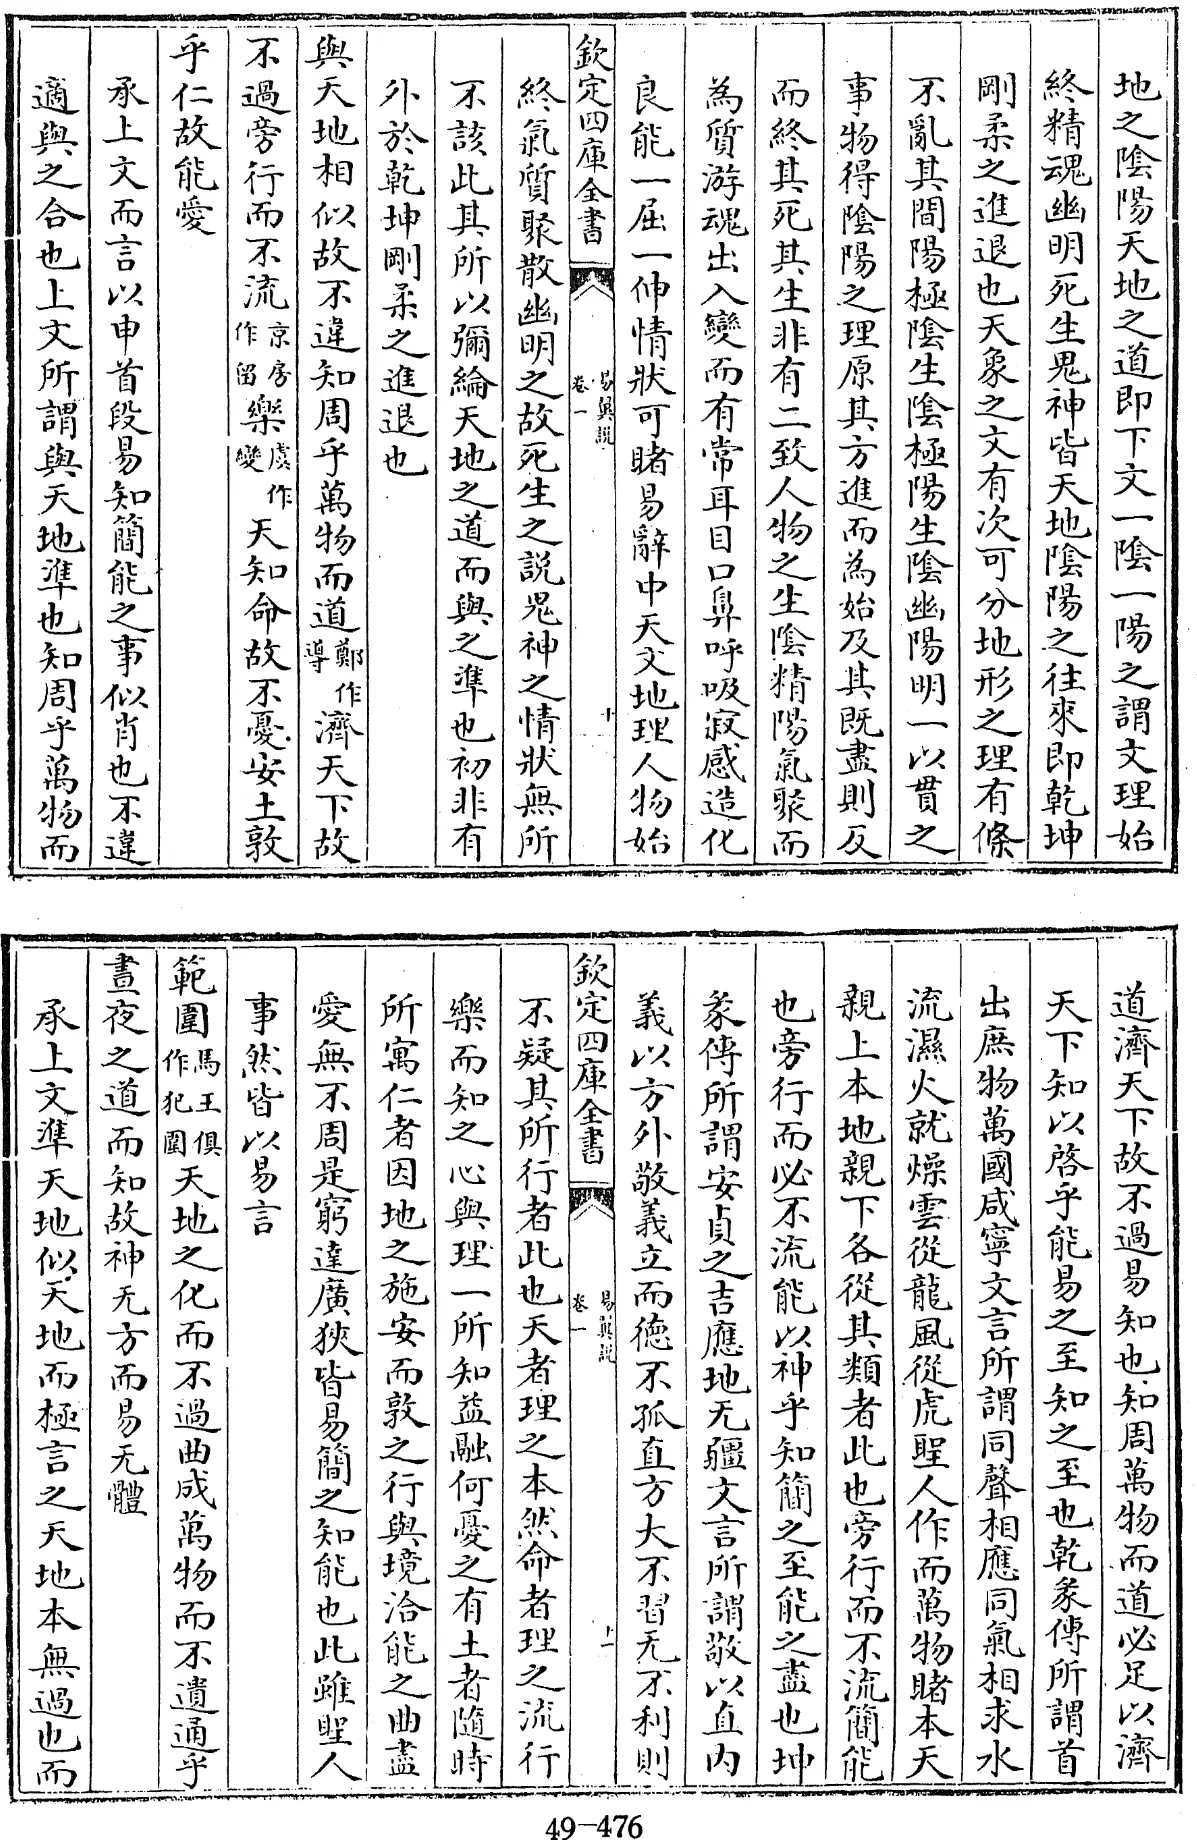 地之陰陽天地之道即下文一陰一陽之謂文理始
終精魂幽明死生鬼神皆天地陰陽之往來即乾坤
剛柔之進退也天象之文有次可分地形之理有條
不亂其間陽極陰生陰極陽生陰幽陽明一以貫之
事物得陰陽之理原其方進而為始及其既盡則反
而終其死其生非有二致人物之生陰精陽氣聚而
為質游魂出入變而有常耳目口鼻呼吸寂感造化
良能一屈一伸情狀可睹易辭中天文地理人物始
欽定四庫全書
易翼說
卷一
十
終氣質聚散幽明之故死生之説鬼神之情狀無所
不該此其所以彌綸天地之道而與之準也初非有
外於乾坤剛柔之進退也
與天地相似故不違知周乎萬物而道鄭作導濟天下故
不過旁行而不流京房作留樂虞作變天知命故不憂安土敦
乎仁故能愛
承上文而言以申首段易知簡能之事似肖也不違
適與之合也上文所謂與天地準也知周乎萬物而
道濟天下故不過易知也知周萬物而道必足以濟
天下知以啓乎能易之至知之至也乾彖傳所謂首
出庶物萬國咸寧文言所謂同聲相應同氣相求水
流濕火就燥雲從龍風從虎聖人作而萬物睹本天
親上本地親下各從其類者此也旁行而不流簡能
也旁行而必不流能以神乎知簡之至能之盡也坤
彖傳所謂安貞之吉應地无疆文言所謂敬以直內
義以方外敬義立而德不孤直方大不習无不利則
欽定四庫全書
易翼說
卷一
十一
不疑其所行者此也天者理之本然命者理之流行
樂而知之心與理一所知益融何憂之有土者隨時
所寓仁者因地之施安而敦之行與境洽能之曲盡
愛無不周是窮達廣狹皆易簡之知能也此雖聖人
事然皆以易言
範圍馬王俱作犯圍天地之化而不過曲成萬物而不遺通乎
晝夜之道而知故神无方而易无體
承上文準天地似天地而極言之天地本無過也而
49-476